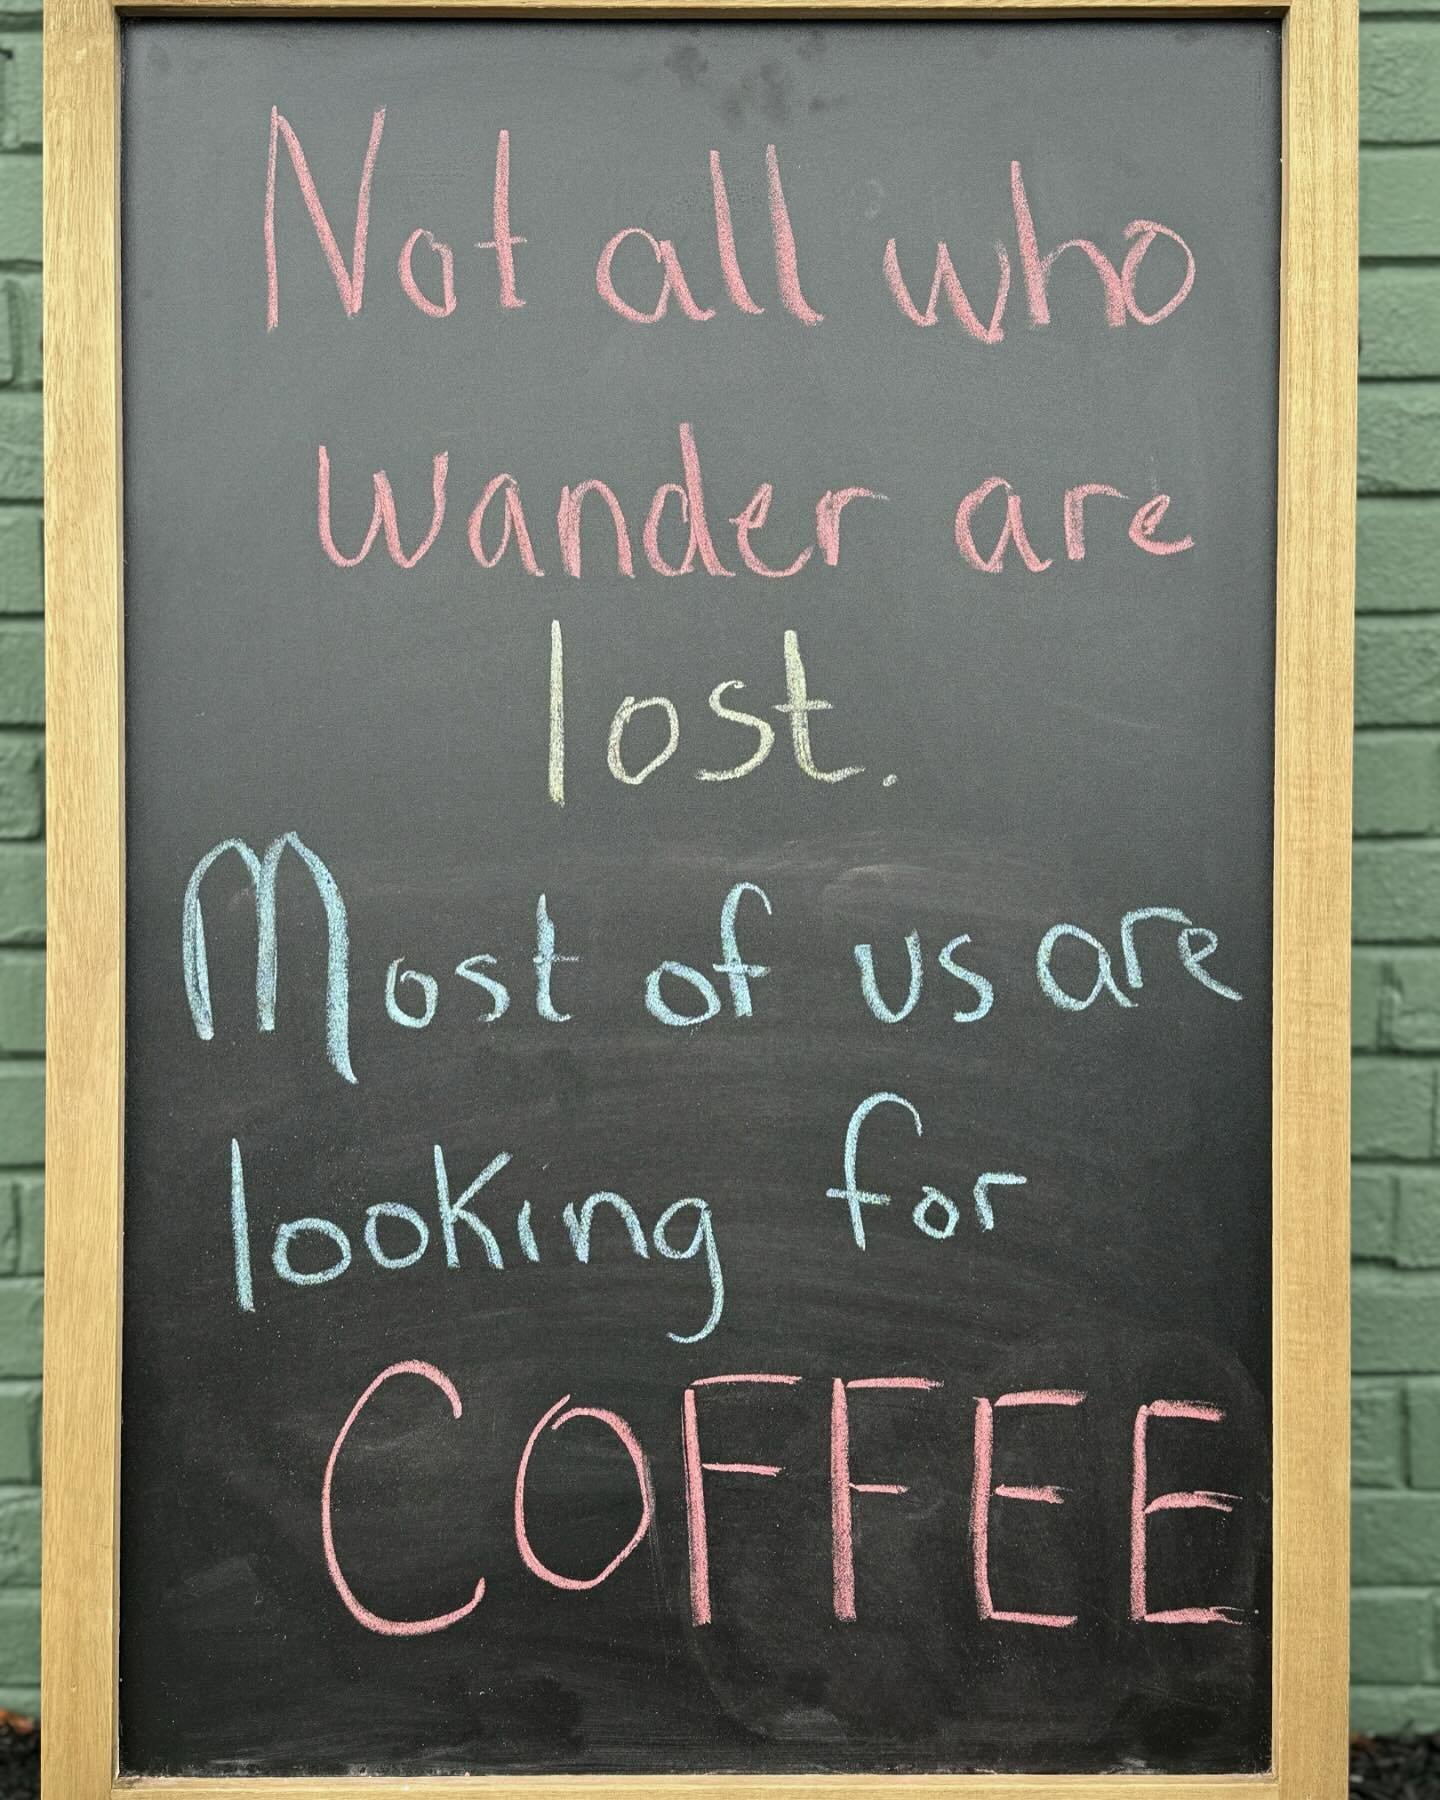 Not all who
wander are
lost.
Most of us are
looking for
COFFEE